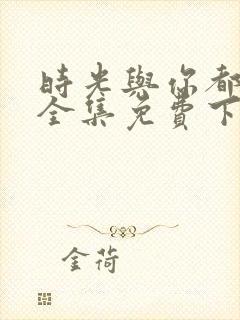 時光與你都
全集免費下
金荷